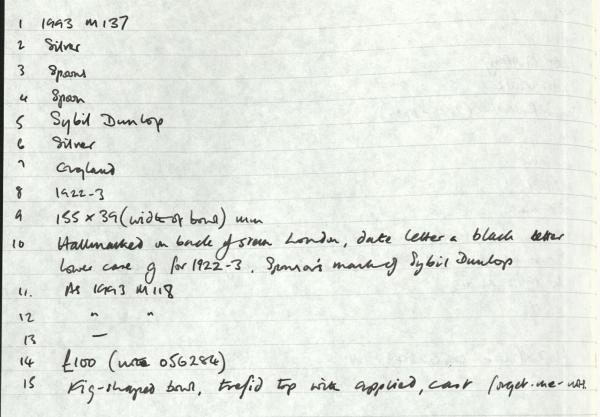 1 1993 M137
2 Silver
3 Spoons
4 Spoon
5 Sybil Dunlop
6 Silver
7 England
8 1922-3
9 155 x 39 (width of bowl) mm
10 Hallmarked on back of stem London, date letter a black letter
lower case g for 1922-3. Sponsor's mark of Sybil Dunlop
11. As 1993 M118
12 " "
13 —
14 £100 (note 056284)
15 Fig-shaped bowl, trefid top with applied, cast forget-me-not